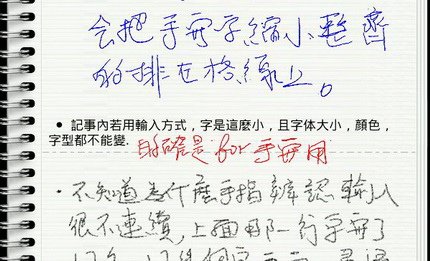 會把手寫字縮小整齊
的排在格線上。
• 記事內若用輸入方式，字是這麼小，且字体大小，顏色，
字型都不能變.
的確是for手寫用
·不知道為什麼手指辨認輸入
很不連續，上面那一行字寫了